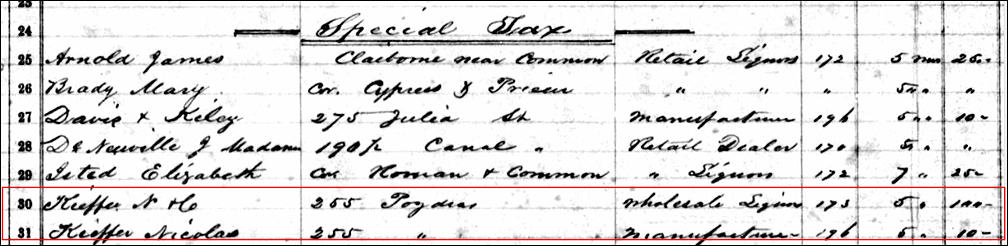 24 Special Tax
25 Arnold James Claiborne near Common Retail Liquors 172 5 mos 25 -
26 Brady Mary Cor. Cypress & Prieur " " " 5 " "
27 Davis & Kiley 275 Julia St Manufacturer 196 5 " 10 -
28 De Neuville J Madame 190½ Canal " Retail Dealer 170 5 " "
29 Isted Elizabeth Cor Homan & Common " Liquors 172 7 " 25 -
30 Kieffer N & C 255 Poydras Wholesale Liquors 173 5 " 100 -
31 Kieffer Nicolas 255 " Manufacturer 196 5 " 10 -